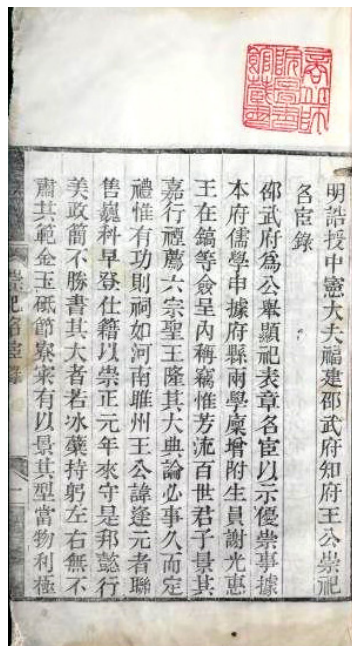 明誥授中憲大夫福建邵武府知府王公崇祀
名宦錄
邵武府爲公舉顯祀表章名宦以示優崇事據
本府儒學申據府縣兩學廩增附生員謝光惠
王在鎬等僉呈內稱竊惟芳流百世君子景其
嘉行禋薦六宗聖王隆其大典論必事久而定
禮惟有功則祠如河南睢州王公諱逢元者聯
售巍科早登仕籍以崇正元年來守是邦懿行
美政簡不勝書其大者若冰蘗持躬左右無不
肅其範金玉砥節寮寀有以景其型當物利極
崇祀名宦錄
一